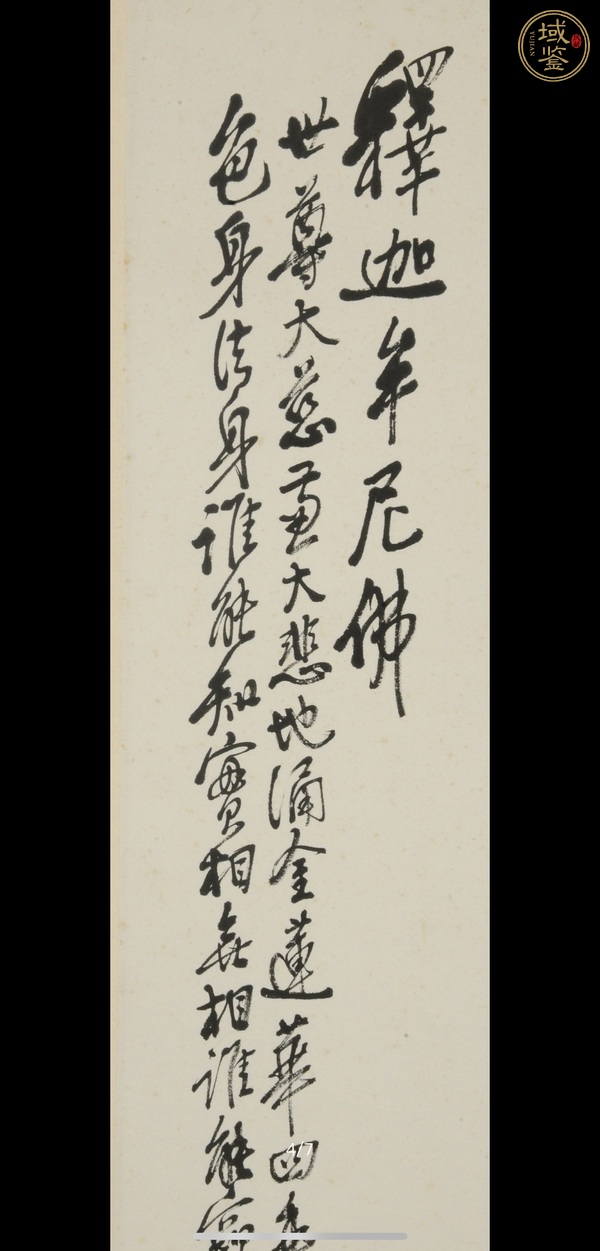 釋迦牟尼佛
世尊大慈兼大悲地涌金蓮華四
色身法身誰能知實相無相誰能窮
域鉴
YUJIAN
4/7